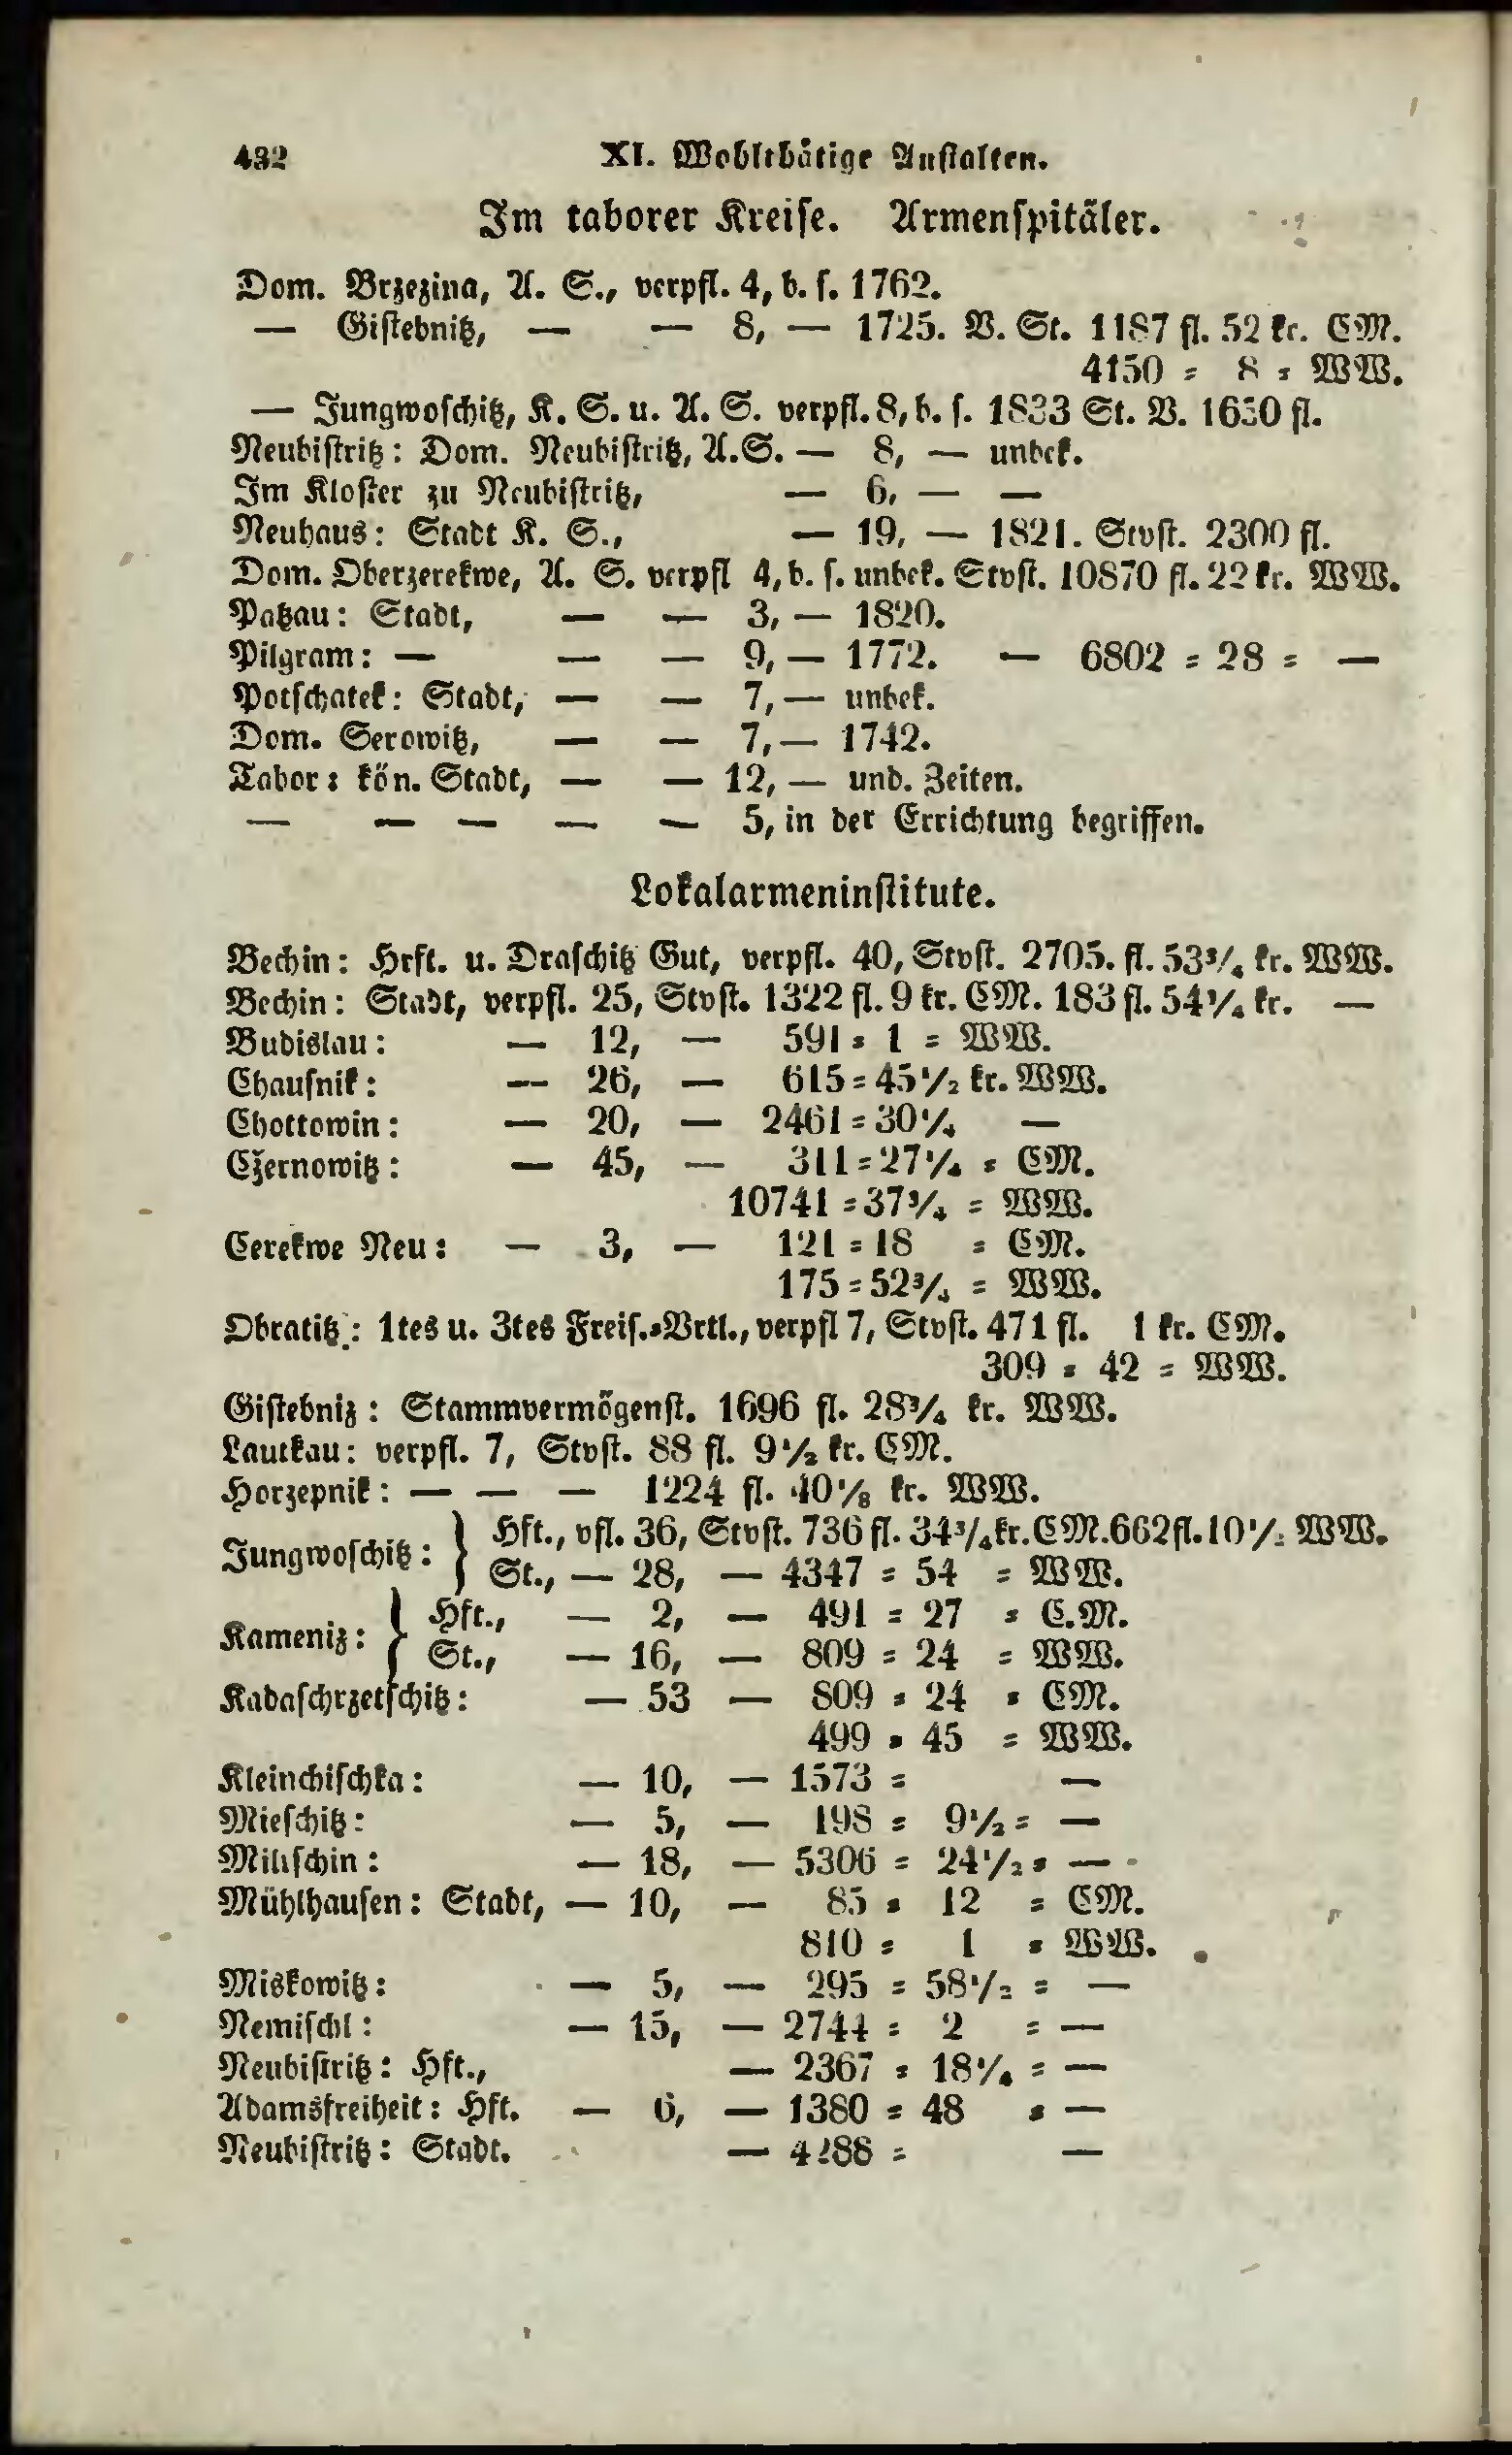 432 XI. Wohlthätige Anstalten.
Im taborer Kreise. Armenspitäler.
Dom. Brzezina, A. S., verpfl. 4, b. s. 1762.
— Gistebnitz, — — 8, — 1725. V. St. 1187 fl. 52 kr. CM.
4150 = 8 = WW.
— Jungwoschitz, K. S. u. A. S. verpfl. 8, b. s. 1833 St. V. 1650 fl.
Neubistritz: Dom. Neubistritz, A.S. — 8, — unbek.
Im Kloster zu Neubistritz, — 6, — —
Neuhaus: Stadt K. S., — 19, — 1821. Stvst. 2300 fl.
Dom. Oberzerekwe, A. S. verpfl 4, b. s. unbek. Stvst. 10870 fl. 22 kr. WW.
Patzau: Stadt, — — 3, — 1820.
Pilgram: — — — 9, — 1772. — 6802 = 28 = —
Potschatek: Stadt, — — 7, — unbek.
Dom. Serowitz, — — 7, — 1742.
Tabor: kön. Stadt, — — 12, — und. Zeiten.
— — — — — 5, in der Errichtung begriffen.
Lokalarmeninstitute.
Bechin: Hrft. u. Draschitz Gut, verpfl. 40, Stvst. 2705. fl. 53¾ kr. WW.
Bechin: Stadt, verpfl. 25, Stvst. 1322 fl. 9 kr. CM. 183 fl. 54¼ kr. —
Budislau: — 12, — 591 = 1 = WW.
Chausnik: — 26, — 615 = 45½ kr. WW.
Chottowin: — 20, — 2461 = 30¼ —
Cžernowitz: — 45, — 311 = 27¼ = CM.
10741 = 37¾ = WW.
Cerekwe Neu: — 3, — 121 = 18 = CM.
175 = 52¾ = WW.
Obratitz: 1tes u. 3tes Freis.=Vrtl., verpfl 7, Stvst. 471 fl. 1 kr. CM.
309 = 42 = WW.
Gistebniz: Stammvermögenst. 1696 fl. 28¾ kr. WW.
Lautkau: verpfl. 7, Stvst. 88 fl. 9½ kr. CM.
Horzepnik: — — — 1224 fl. 40⅛ kr. WW.
Jungwoschitz: } Hft., vfl. 36, Stvst. 736 fl. 34¾ kr. CM. 662 fl. 10½ WW.
St., — 28, — 4347 = 54 = WW.
Kameniz: } Hft., — 2, — 491 = 27 = C.M.
St., — 16, — 809 = 24 = WW.
Kadaschrzetschitz: — 53 — 809 = 24 = CM.
499 = 45 = WW.
Kleinchischka: — 10, — 1573 = —
Mieschitz: — 5, — 198 = 9½ = —
Milischin: — 18, — 5306 = 24½ = —
Mühlhausen: Stadt, — 10, — 85 = 12 = CM.
810 = 1 = WW.
Miskowitz: — 5, — 295 = 58½ = —
Nemischl: — 15, — 2744 = 2 = —
Neubistritz: Hft., — 2367 = 18¼ = —
Adamsfreiheit: Hft. — 6, — 1380 = 48 = —
Neubistritz: Stadt. — = —